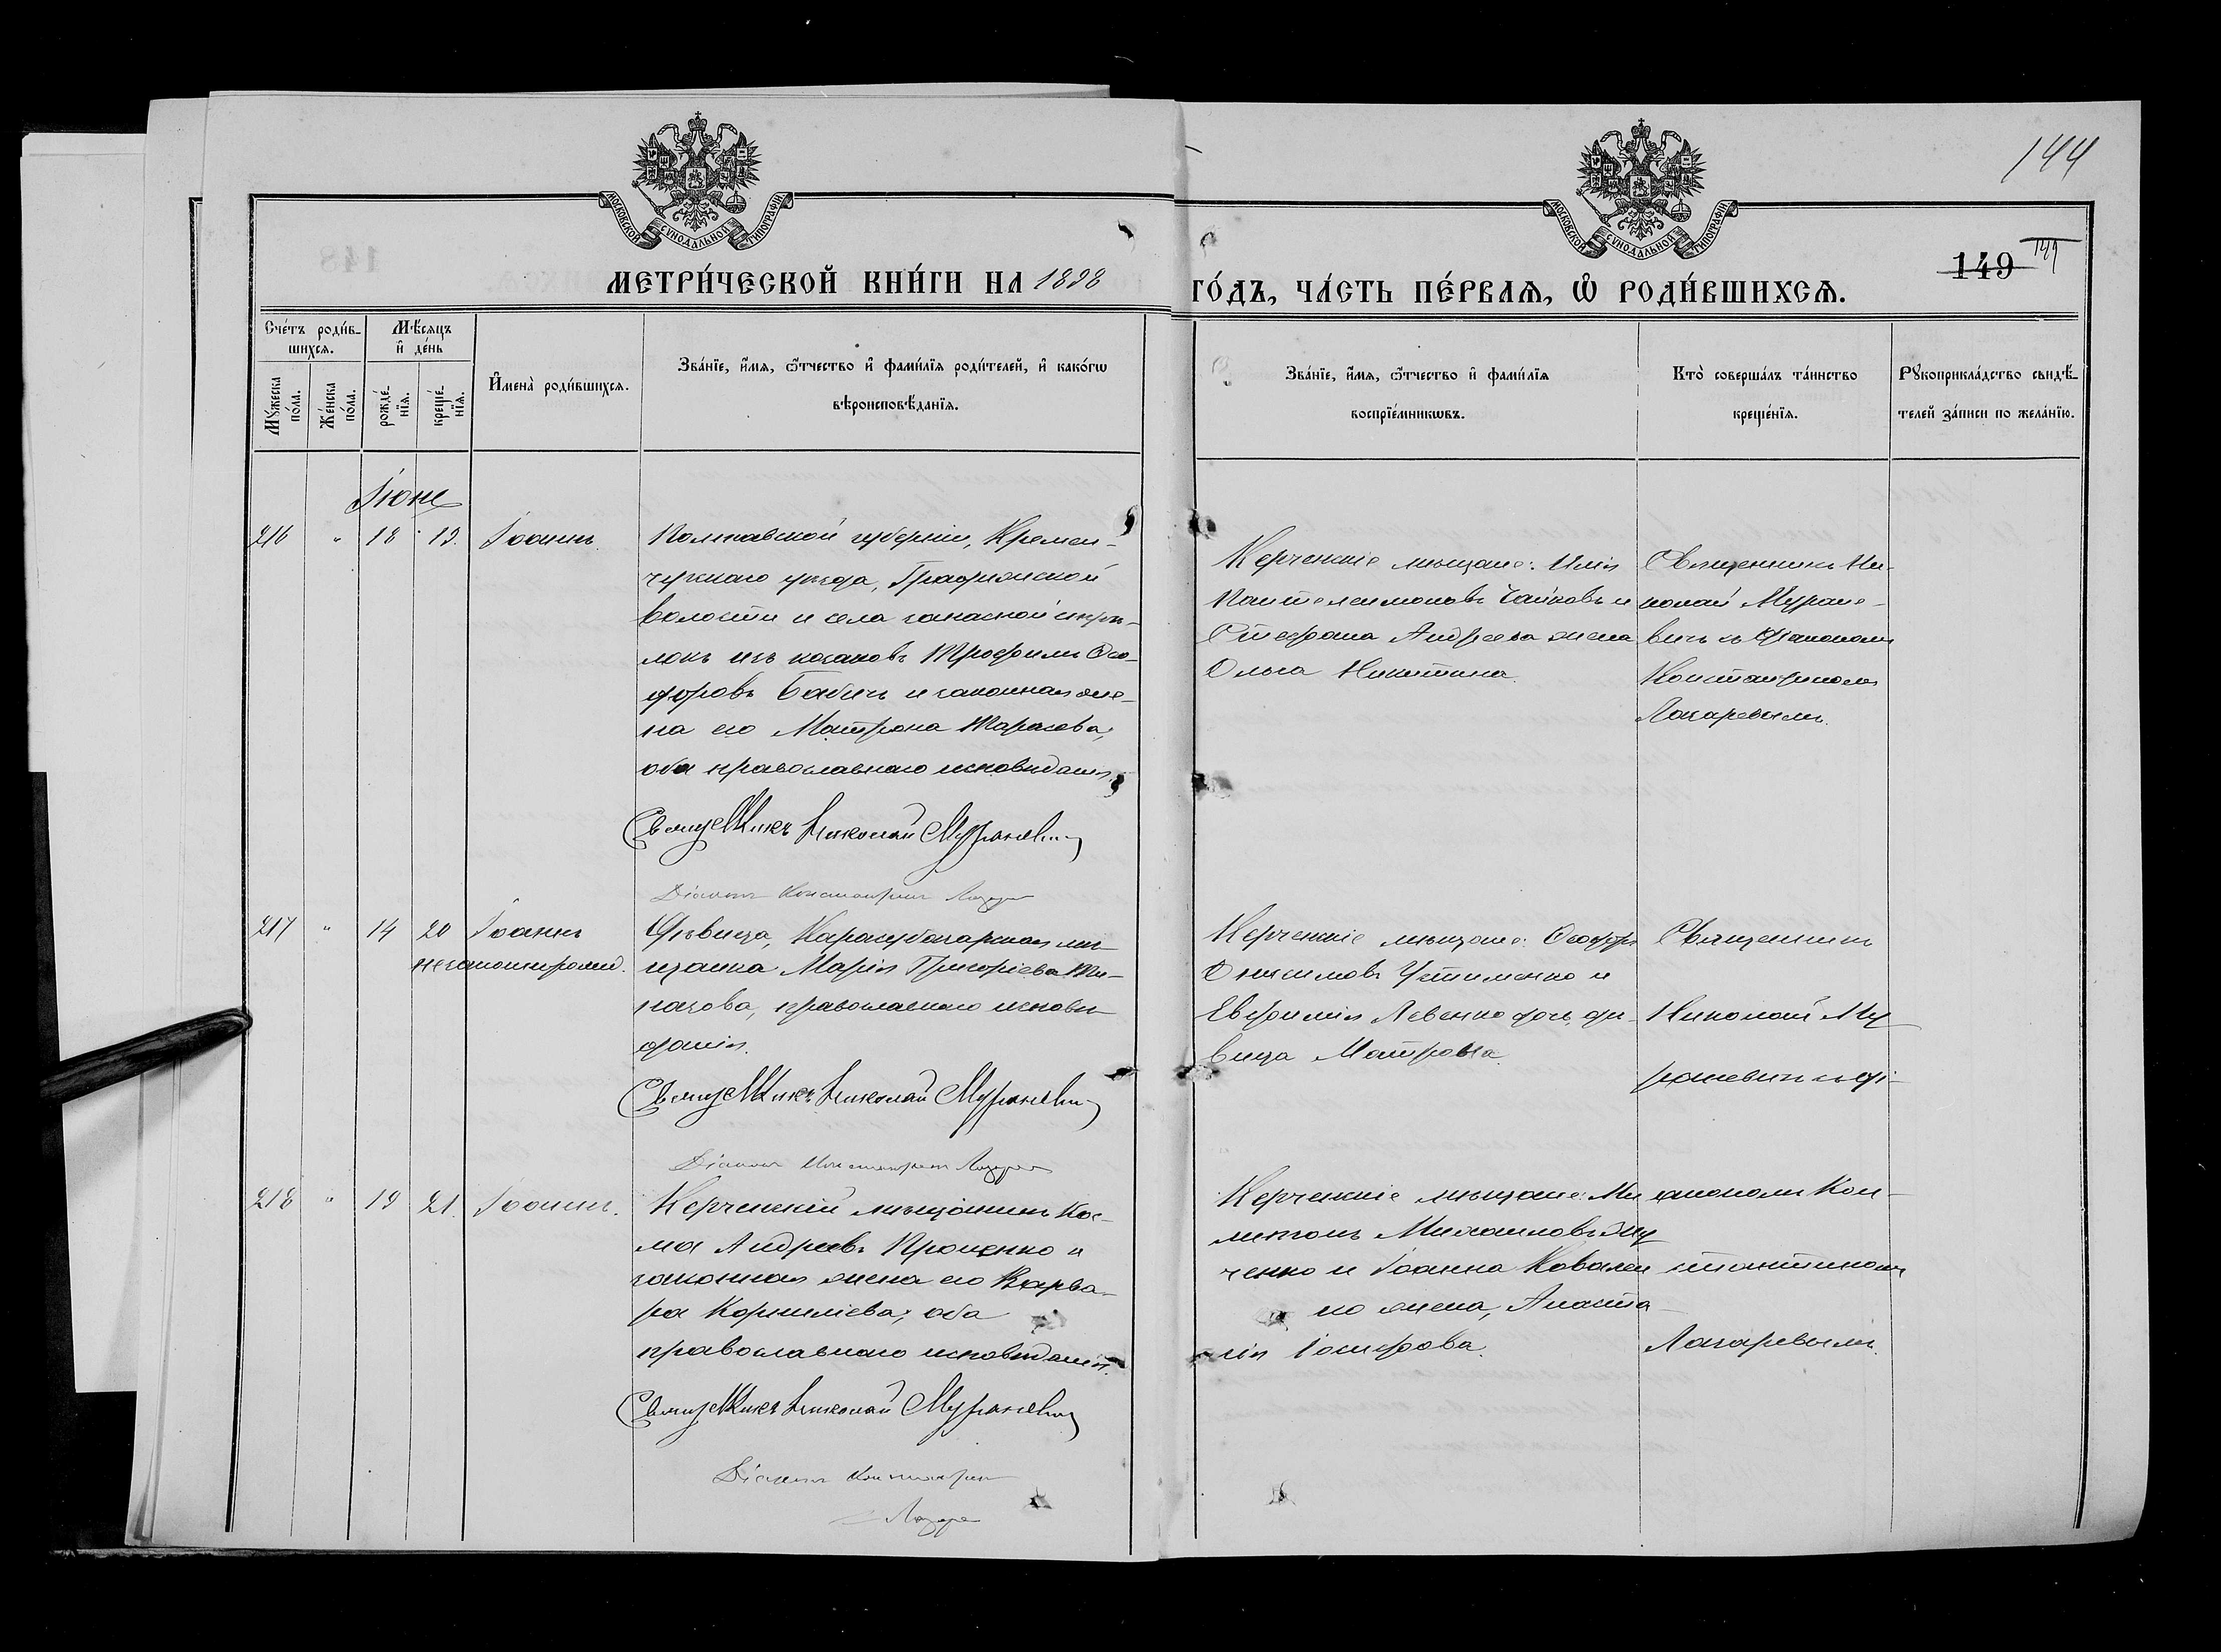 144
МОСКОВСКОЙ СУНОДАЛЬНОЙ ТИПОГРАФІИ
МОСКОВСКОЙ СУНОДАЛЬНОЙ ТИПОГРАФІИ
МЕТРИ́ЧЕСКОЙ КНИ́ГИ НА 1898
ГО́ДЪ, ЧА́СТЬ ПЕ́РВАѦ, Ѡ҆ РОДИ́ВШИХСѦ.
149 144
Сче́тъ роди́в-
шихсѧ.
Мꙋ́жеска
по́ла.
Же́нска
по́ла.
Мѣ́сяцъ
и҆ де́нь
рожде́-
нїѧ.
креще́-
нїѧ.
И҆мена̀ роди́вшихсѧ.
Зва́нїе, и҆́мѧ, ѻ҆́тчество и҆ фами́лїѧ роди́телей, и҆ како́гѡ
вѣроисповѣ́данїѧ.
Зва́нїе, и҆́мѧ, ѻ҆́тчество и҆ фами́лїѧ
воспрїе́мникѡвъ.
Кто̀ соверша́лъ та́инство
креще́нїѧ.
Рꙋкоприкла́дство свидѣ́-
телей за́писи по жела́нїю.
Іюнь
216 " 18 19. Іоаннъ.
Полтавской губерніи, Кремен-
чугскаго уѣзда,
волости и села
изъ козаковъ Трофимъ Ѳео-
доровъ Бабичъ и законная же-
на его Матрона Тарасова,
оба православнаго исповѣданія.
Священникъ Николай Мураневич
Діаконъ Константинъ Лазарев
Керченскіе мѣщане: Илія
Пантелеимоновъ Чайковъ и
Стефана Андреева жена
Ольга Никитина.
Священникъ Ни-
колай Муране-
вичъ съ діакономъ
Константиномъ
Лазаревымъ.
217 " 14 20 Іоаннъ
незаконнорожд.
Дѣвица, Карасубазарская мѣ-
щанка Марія Григоріева
православнаго исповѣ-
данія.
Священникъ Николай Мураневич
Діаконъ Константинъ Лазарев
Керченскіе мѣщане: Ѳеодоръ
Онисимовъ Устименко и
Евфимія Левенко дочь, дѣ-
вица Матрона.
Священникъ
Николай Му
раневичъ съ ді-
218 " 19 21. Іоаннъ.
Керченскій мѣщанинъ Кос-
ма Андреевъ Проценко и
законная жена его Варва-
ра Корниліева, оба
православнаго исповѣданія.
Священникъ Николай Мураневич
Діаконъ Константин
Лазарев
Керченскіе мѣщане:
Михаиловъ
ченко и Іоанна Ковален
ко жена, Анаста-
сія Іосифова.
акономъ Кон-
стантиномъ
Лазаревымъ.